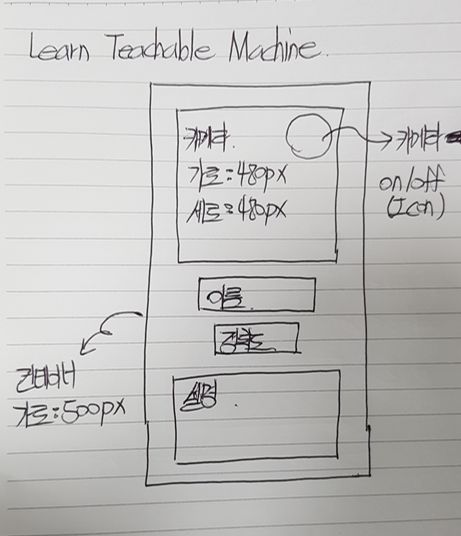 Learn Teachable Machine.
카메라.
가로=480px
세로=480px
카메라
on/off
(Icon)
이름
정확도
컨테이너
가로=500px
설명